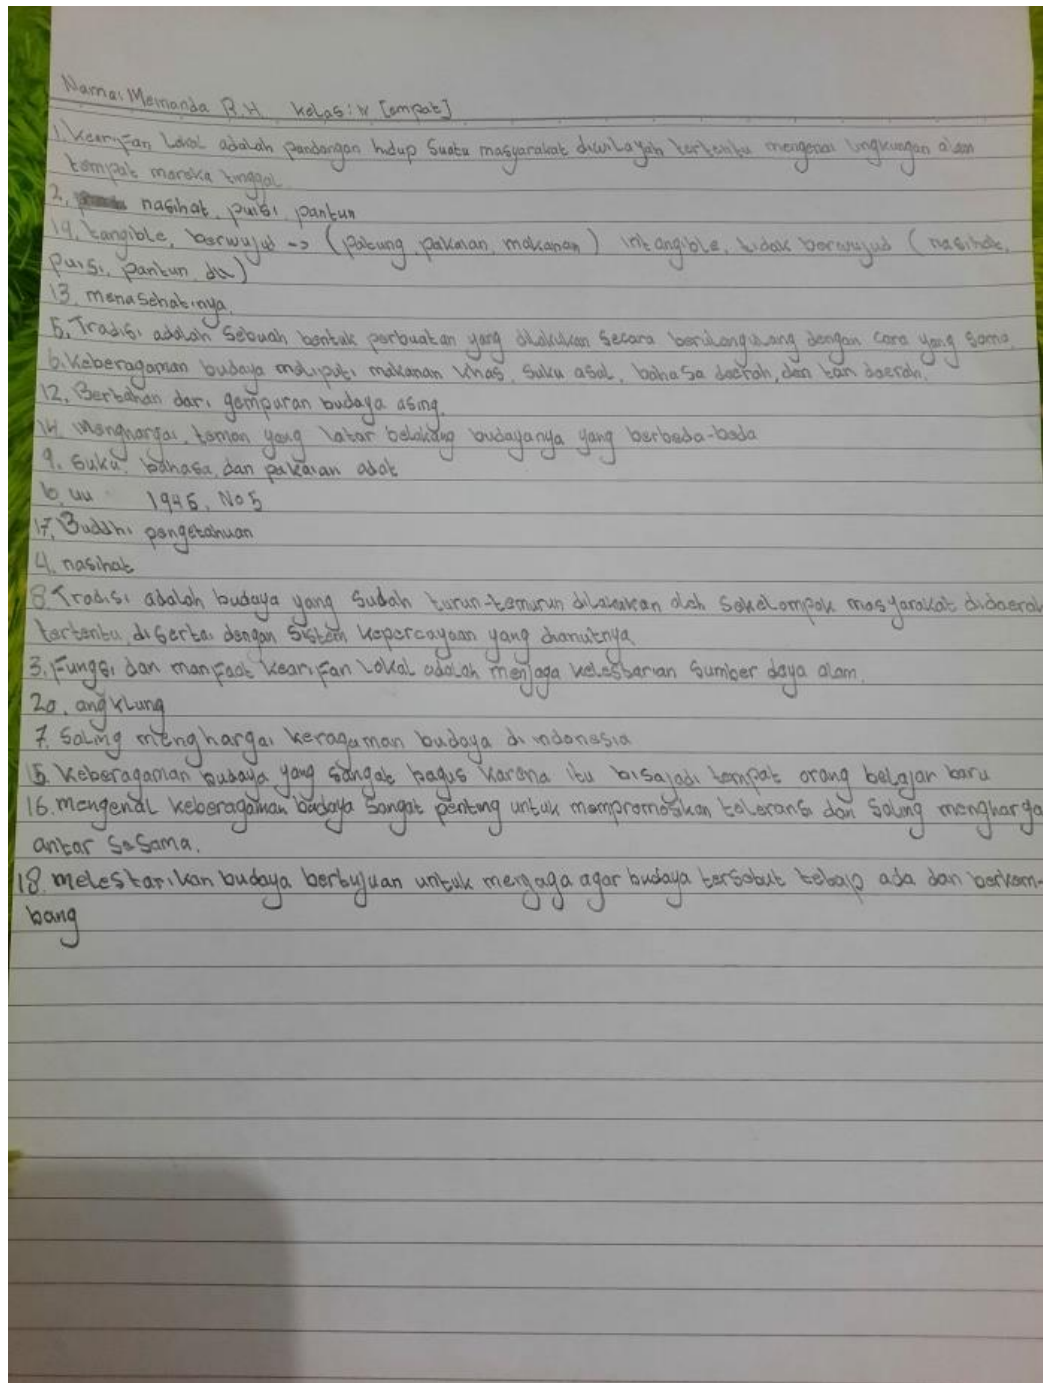 Nama: Meinanda R.H kelas: IV [empat]
1. Kearifan Lokal adalah pandangan hidup Suatu masyarakat diwilayah tertentu mengenai lingkungan alam
tempat mereka tinggal.
2. nasihat, puisi, pantun
19. tangible, berwujud -> (patung, pakaian, makanan) intangible, tidak berwujud (nasihat,
puisi, pantun, dll)
13. menasehatinya.
5. Tradisi adalah Sebuah bentuk perbuatan yang dilakukan secara berulangulang dengan cara yang sama.
6. Keberagaman budaya meliputi makanan khas, suku asal, bahasa daerah, dan tari daerah.
12. Bertahan dari gempuran budaya asing.
14. menghargai teman yang latar belakang budayanya yang berbeda-beda
9. Suku, bahasa, dan pakaian adat
10. UU 1945, No 5
17. Buddhi pengetahuan
4. nasihat
8. Tradisi adalah budaya yang Sudah turun-temurun dilakukan oleh Sekelompok masyarakat didaerah
tertentu, disertai dengan Sistem kepercayaan yang dianutnya
3. Fungsi dan manfaat kearifan lokal adalah menjaga kelestarian Sumber daya alam.
20. angklung
7. Saling menghargai keragaman budaya di indonesia
15. Keberagaman budaya yang Sangat bagus karena itu bisa jadi tempat orang belajar baru
16. mengenal keberagaman budaya Sangat penting untuk mempromosikan toleransi dan Saling mengharga
antar Sesama.
18. melestarikan budaya bertujuan untuk menjaga agar budaya tersebut tetap ada dan berkem-
bang